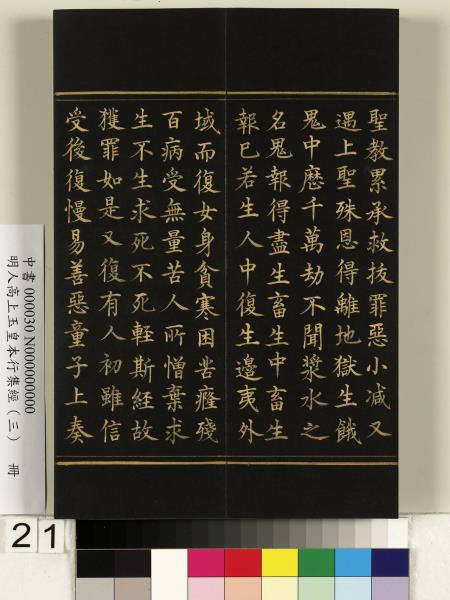 聖教累承救拔罪惡小减又
遇上聖殊恩得離地獄生餓
鬼中歷千萬劫不聞漿水之
名鬼報得盡生畜生中畜生
報已若生人中復生邊夷外
域而復女身貧寒困苦癃殘
百病受無量苦人所憎棄求
生不生求死不死輕斯經故
獲罪如是又復有人初雖信
受後復慢易善惡童子上奏
中書 000030 N000000000
明人高上玉皇本行集經（三） 冊
21